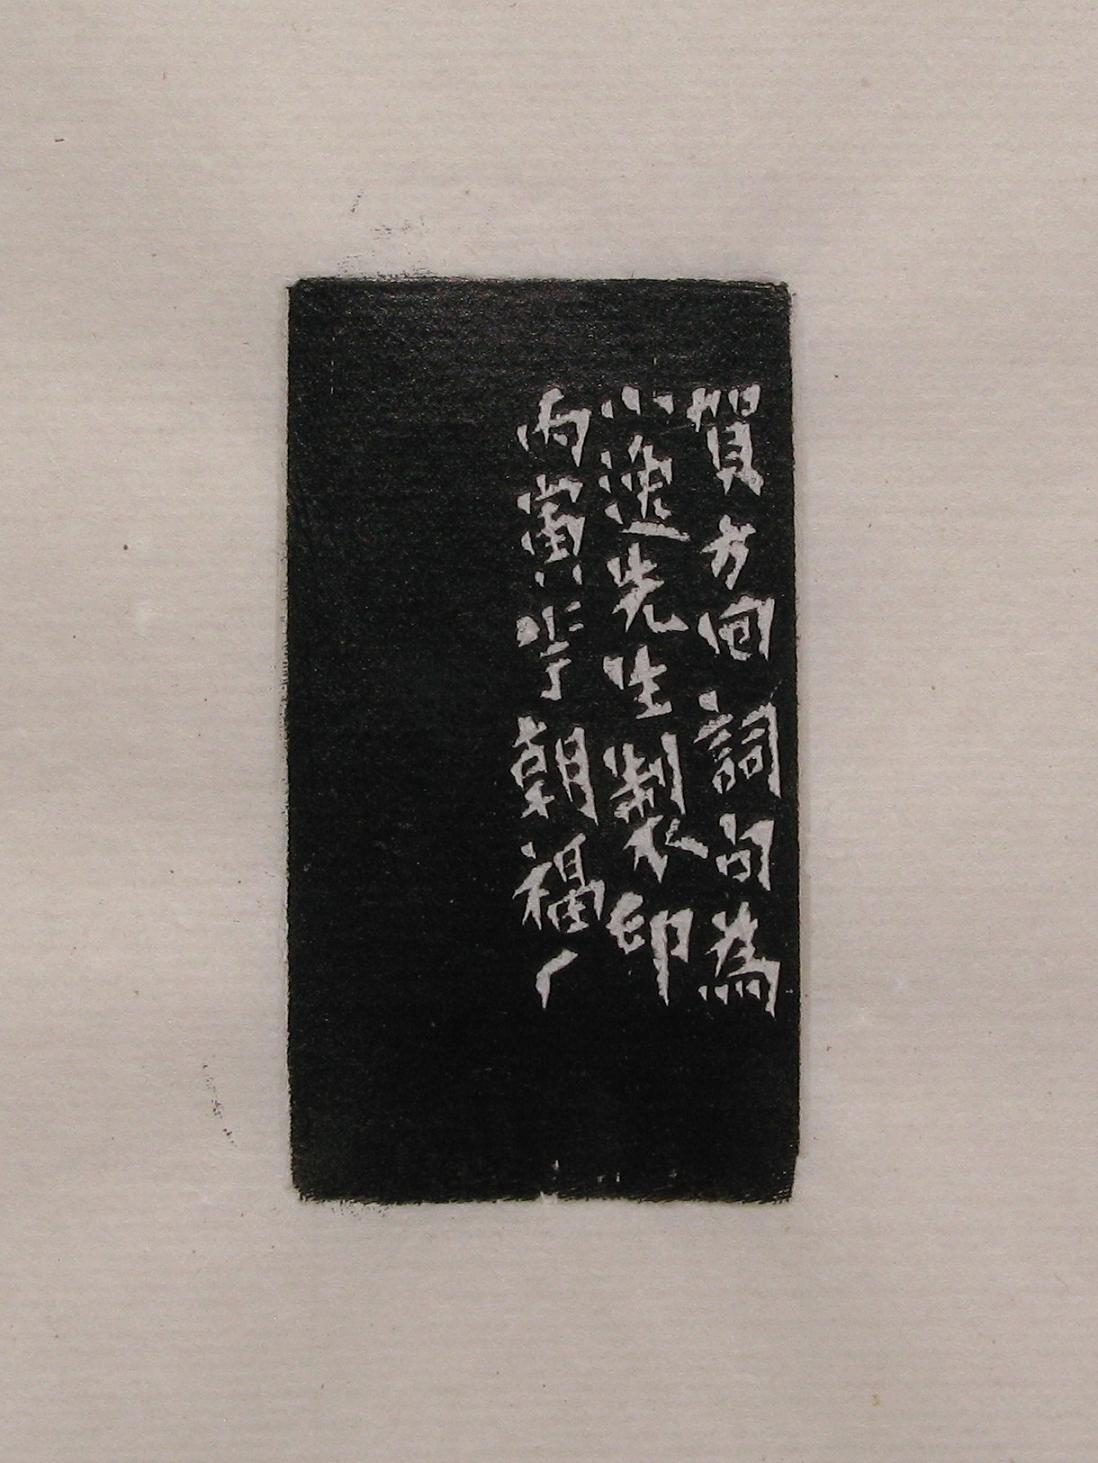 賀方回詞句為
小逸先生製印
丙寅朝福厂